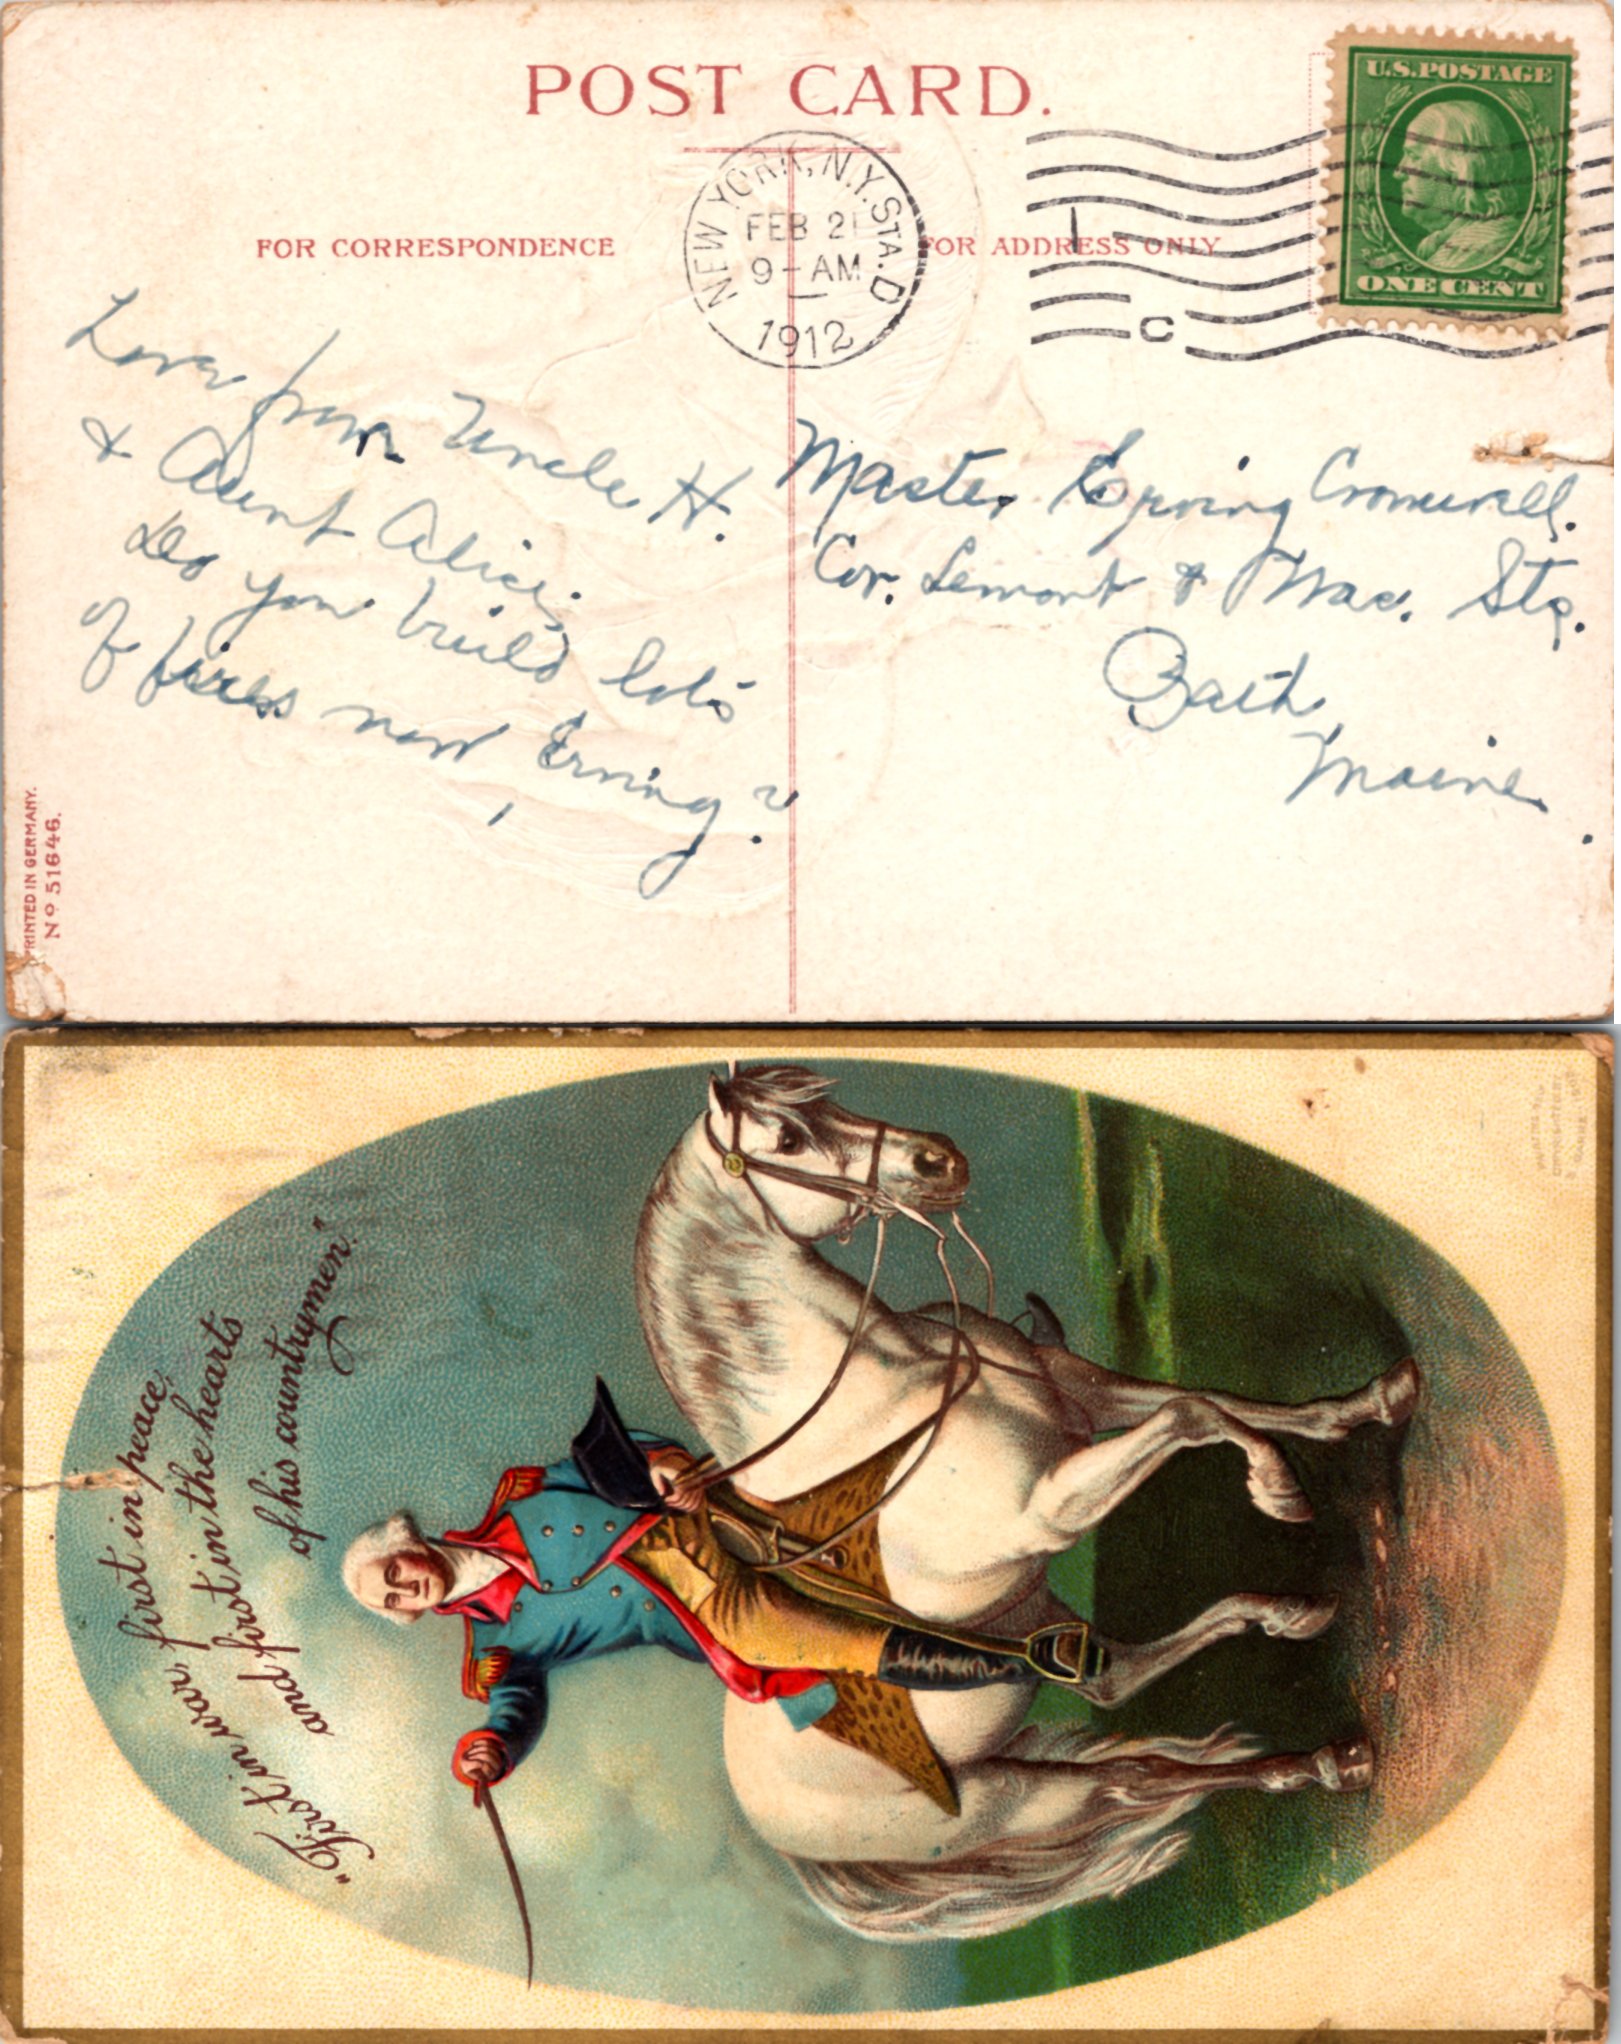 POST CARD.
FOR CORRESPONDENCE
FOR ADDRESS ONLY
NEW YORK, N.Y. STA. D
FEB 21
9-AM
1912
1
C
U.S. POSTAGE
ONE CENT
Love from Uncle H.
& Aunt Alice.
Do you build lots
of fires now, Erving?
Master Erving Cromwell.
Cor. Lemont & Mac. Sts.
Bath,
Maine.
PRINTED IN GERMANY.
No 51646.
"First in war, first in peace,
and first in the hearts
of his countrymen."